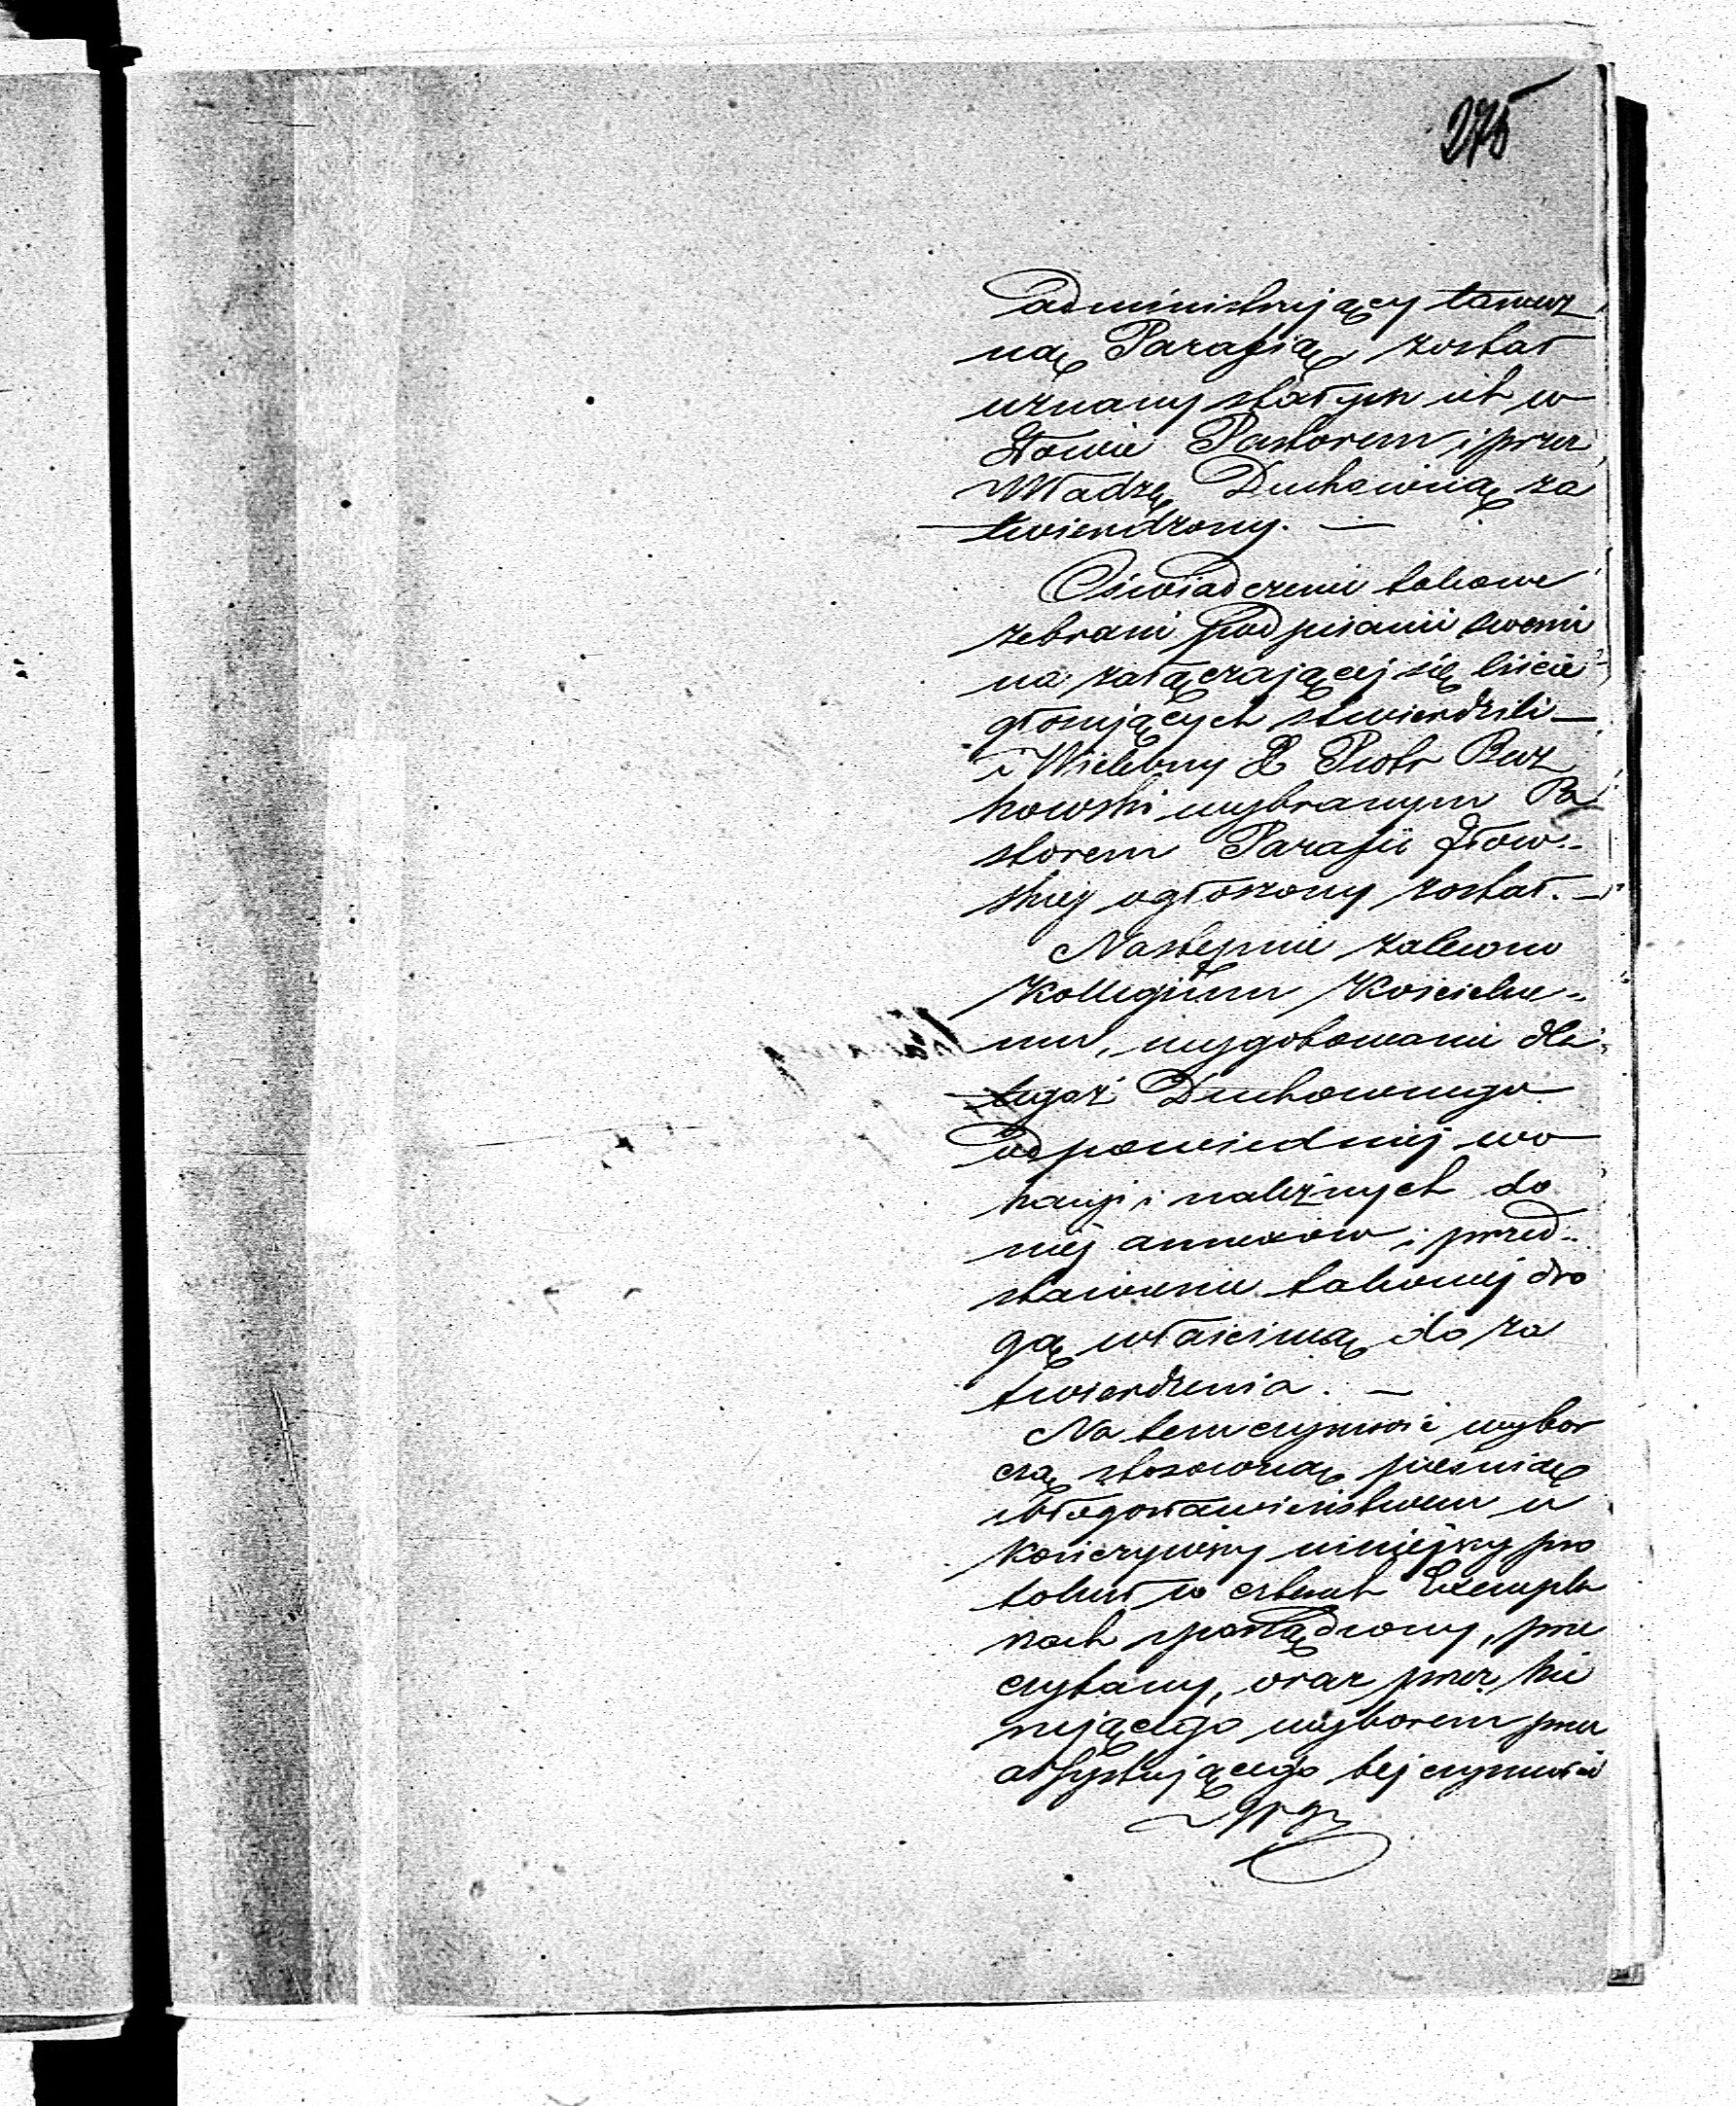 275
administrujący tamecz
ną Parafią, został
uznany stałym ich w
Iłowie Pastorem i przez
Władzę Duchowną za
twierdzony. —
Oświadczenie takowe
zebrani podpisami swemi
na załączającej się liście
głosujących stwierdzili —
i Wielebny X Piotr
kowski wybranym Pa
storem Parafii Iłow-
skiej ogłoszony został. —
Następnie zalecono
Kollegium Kościelne-
mu, wygotowanie dla
tegoż Duchownego
odpowiedniej wo
kacji i należnych do
niej annexów i przed-
stawienie takowej dro
gą właściwą do za
twierdzenia. —
Na tem czynność wybor
czą stosowną pieśnią
i błogosławieństwem u
kończywszy niniejszy pro
tokuł w czterech Exempla
rzach sporządzony, prze
czytany, oraz przez kie
rującego wyborem przez
assystującego tej czynności